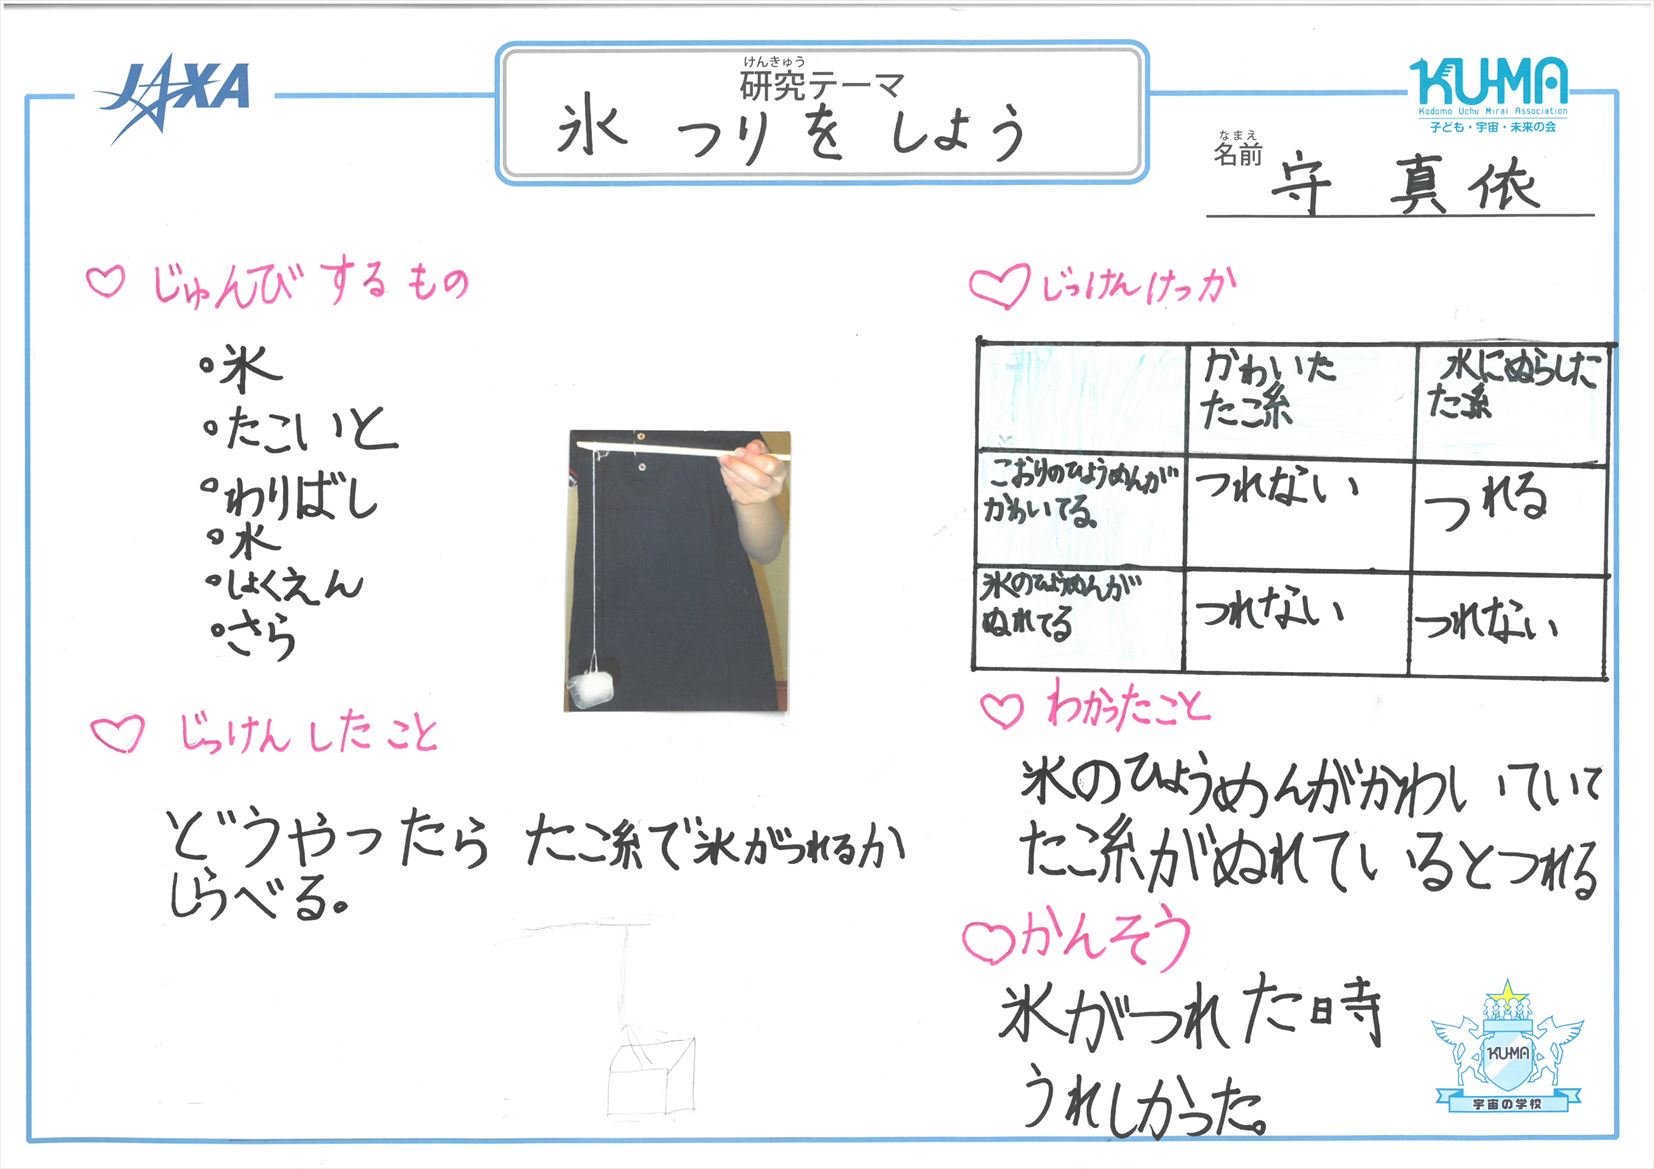 JAXA
けんきゅう
研究テーマ
氷 つりを しよう
KU-MA
Kodomo Uchu Mirai Association
子ども・宇宙・未来の会
なまえ
名前
守 真依
♡ じゅんび する もの
・氷
・たこいと
・わりばし
・水
・しょくえん
・さら
♡ じっけん したこと
どうやったら たこ糸で氷がつれるか
しらべる。
♡ じっけんけっか
かわいた
たこ糸
水にぬらした
たこ糸
こおりのひょうめんが
かわいてる。
つれない
つれる
氷のひょうめんが
ぬれてる
つれない
つれない
♡ わかったこと
氷のひょうめんがかわいていて
たこ糸がぬれているとつれる
♡かんそう
氷がつれた時
うれしかった。
KU-MA
宇宙の学校